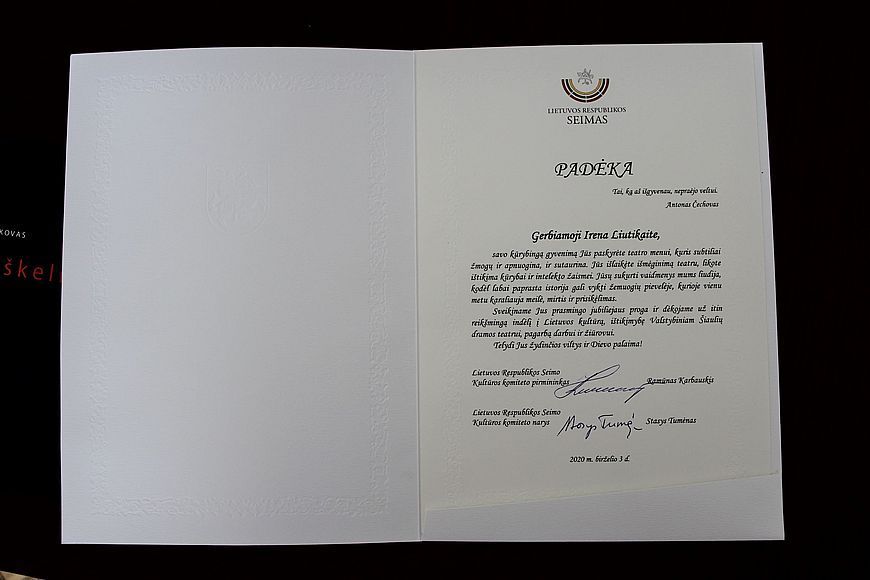 KOVAS
škel
LIETUVOS RESPUBLIKOS
SEIMAS
PADĖKA
Tai, ką aš išgyvenau, nepraėjo veltui.
Antonas Čechovas
Gerbiamoji Irena Liutikaite,
savo kūrybingą gyvenimą Jūs paskyrėte teatro menui, kuris subtiliai
žmogų ir apnuogina, ir sutaurina. Jūs išlaikėte išmėginimą teatru, likote
ištikima kūrybai ir intelekto žaismei. Jūsų sukurti vaidmenys mums liudija,
kodėl labai paprasta istorija gali vykti žemuogių pievelėje, kurioje vienu
metu karaliauja meilė, mirtis ir prisikėlimas.
Sveikiname Jus prasmingo jubiliejaus proga ir dėkojame už itin
reikšmingą indėlį į Lietuvos kultūrą, ištikimybę Valstybiniam Šiaulių
dramos teatrui, pagarbą darbui ir žiūrovui.
Telydi Jus žydinčios viltys ir Dievo palaima!
Lietuvos Respublikos Seimo
Kultūros komiteto pirmininkas Ramūnas Karbauskis
Lietuvos Respublikos Seimo
Kultūros komiteto narys Stasys Tumėnas
2020 m. birželio 3 d.